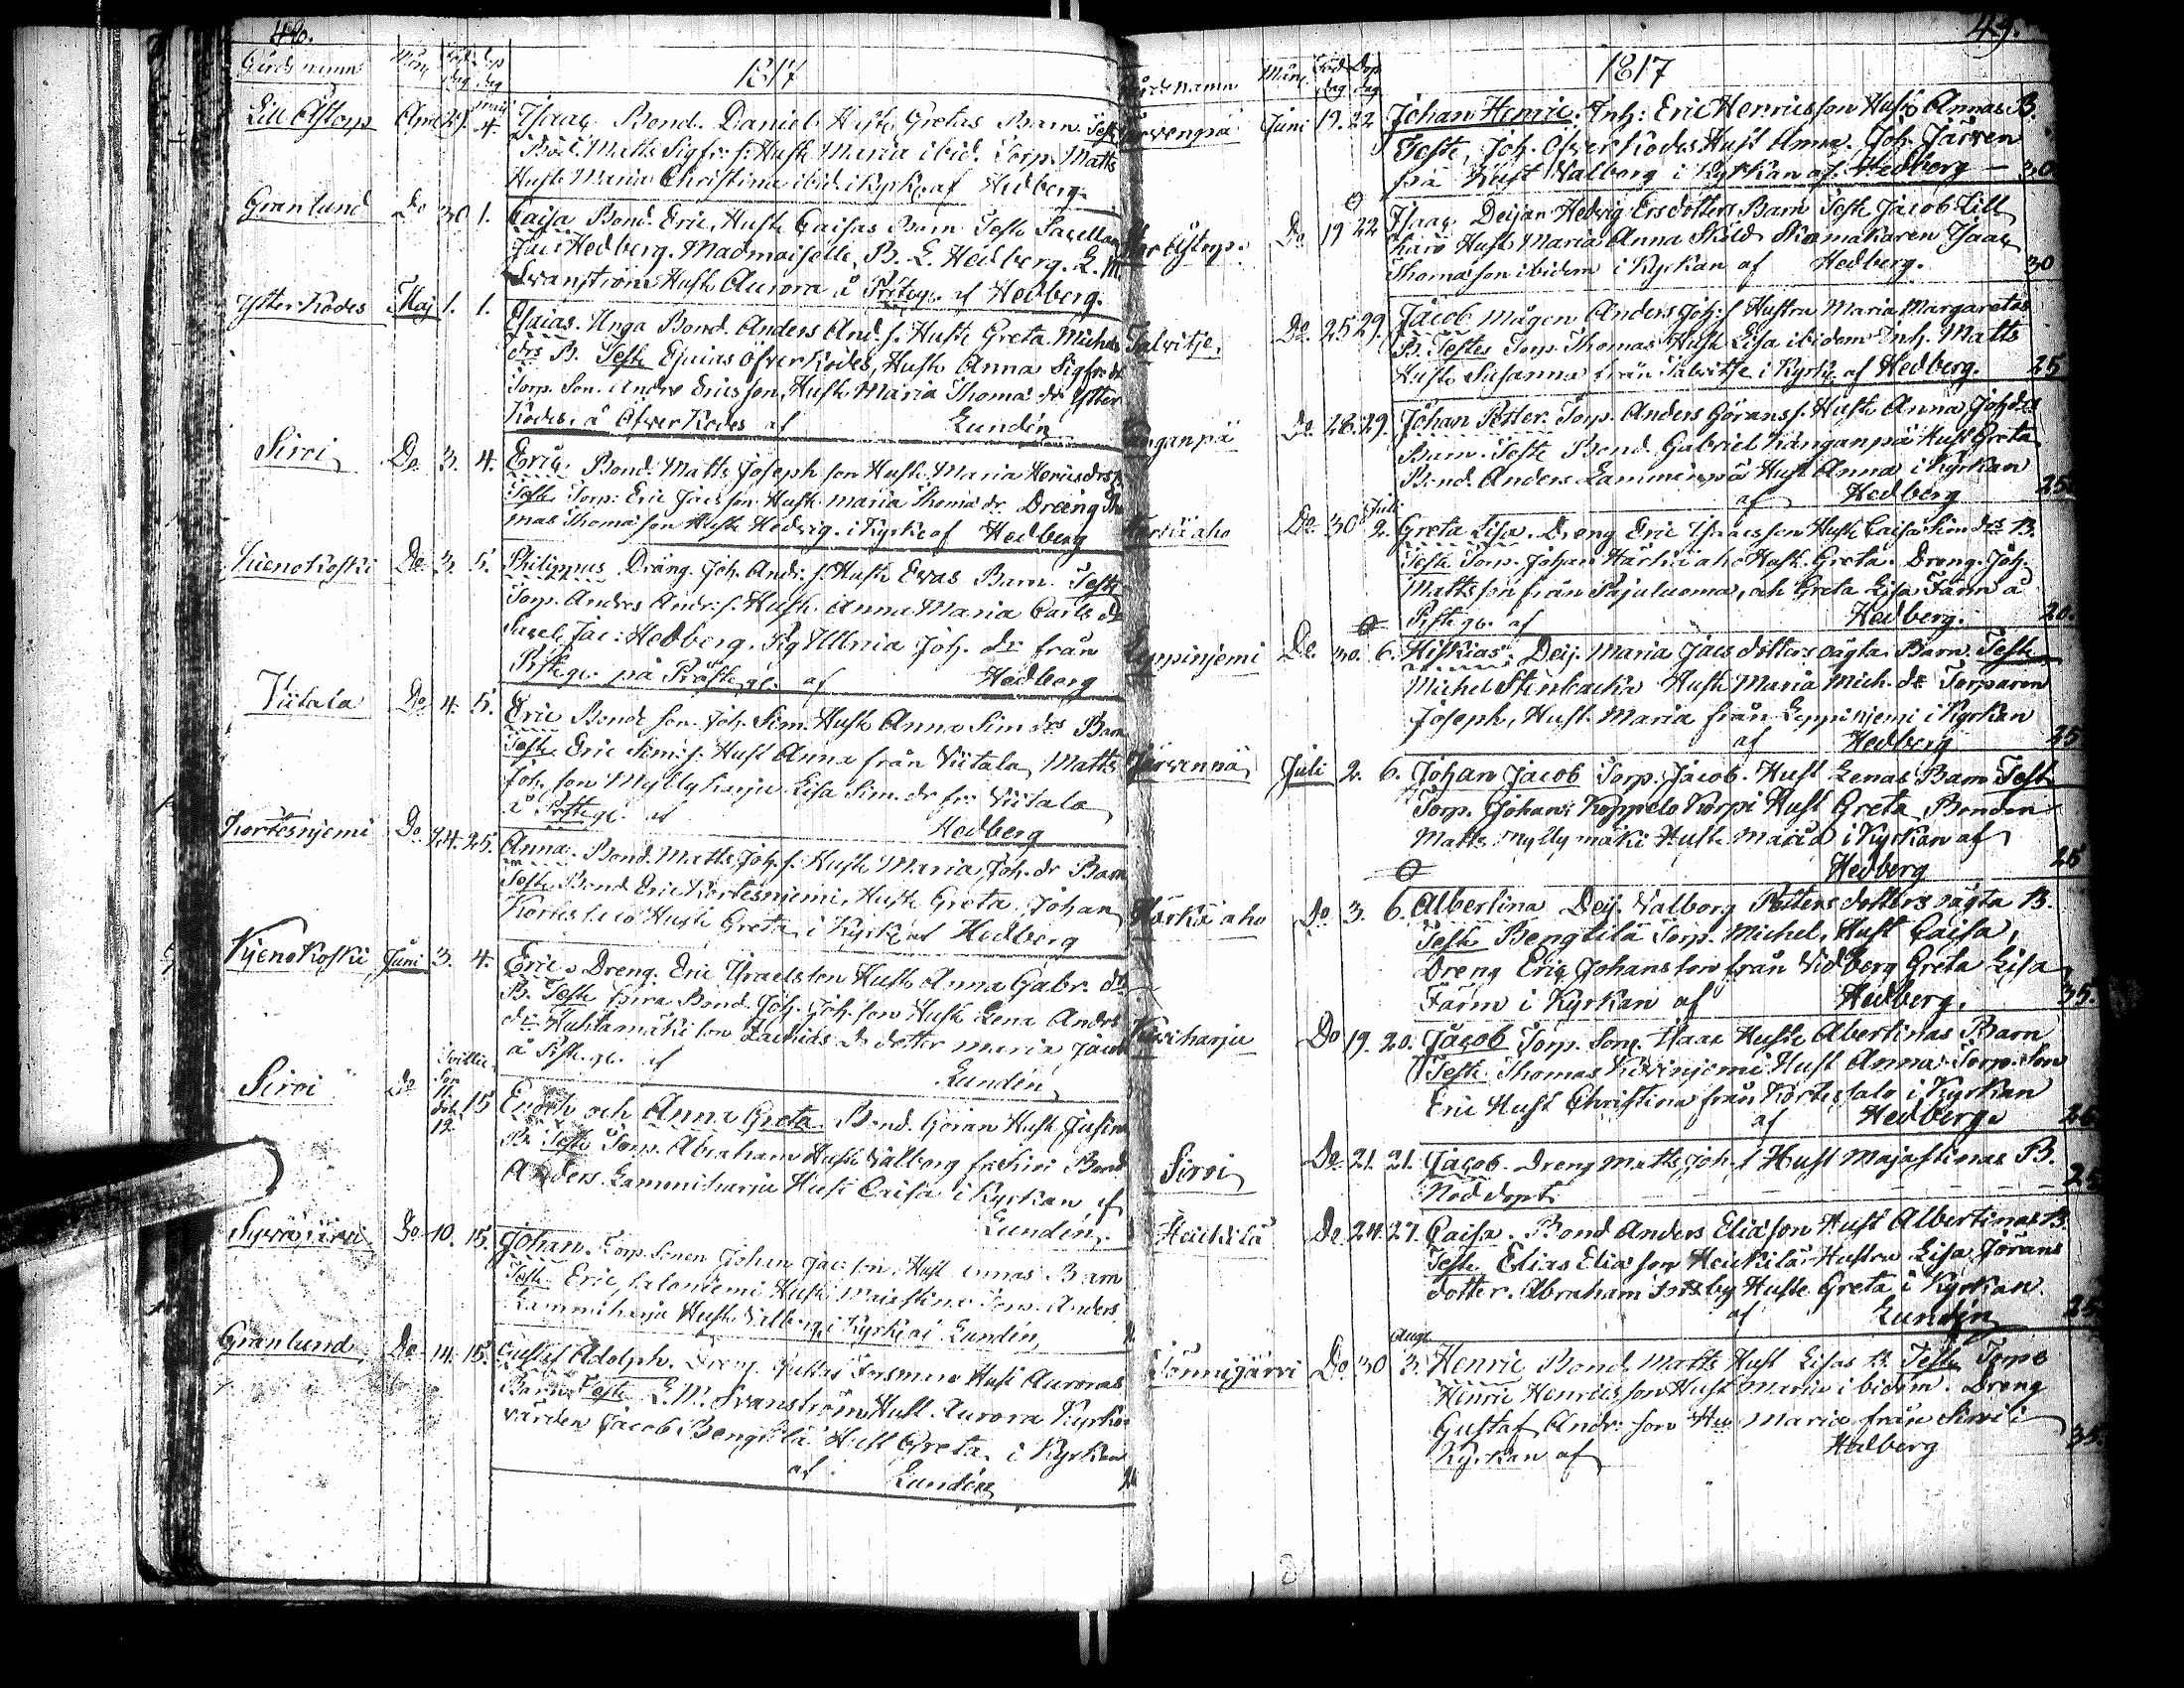 48.
Gårds namn Mån Föd. dag Döp dag 1817
Lill Åstorp 29. Maij 4. Isaac Bond. Daniel Hust. Gretas Barn. Test.
Bond. Matts Sigfr: s. Hust Maria ibid. Torp. Matts
Hust Maria Christina ibid. i Kyrk. af Hedberg.
Granlund Do 30 1. Caisa Bond. Eric, Hust Caisas Barn Teste Sacellan
Jac: Hedberg. Madmoiselle B. E. Hedberg. L. M.
Svanström Hust Aurora å Prestg. af Hedberg.
Ytter Kodes Maj 1. 1. Esaias. Unga Bond. Anders And. s. Hust. Greta Michels
drs B. Teste Esaias Öfver Kodes, Hust Anna Sigfr. dr
Torp. Son. Andrs Ericsson, Hust Maria Thoma dr Ytter
Kodes. å Öfver Kodes af Lundén
Sirvi Do 3. 4. Eric. Bond. Matts Joseph son Hust. Maria Henricsdrs B.
Teste Torp: Eric Jacsson Hust maria Thoma dr. Dreng Tho
mas Thomasson Hust Hedvig. i Kyrk. af Hedberg
Kienokoski Do 3. 5. Philippus Dräng. Joh. Andr. s. Hust Evas Barn. Teste
Torp. Andrs Andr: s. Hust. Anna Maria Carls dr
Sacel. Jac: Hedberg. Pig Ullrica Joh. dr. från
Prestg. på Prästg. af Hedberg
Viitala Do 4. 5. Eric Bonde Son Joh. Sim. Hust Anna Sim drs Barn
Teste Eric Sim: s. Hust Anna från Viitala, Matts
Joh. son Myllyharju Lisa Sim. dr fr: Viitala
å Prestg. af Hedberg
Kortesnjemi Do 24. 25. Anna. Bond. Matts Joh. s. Hust. Maria Joh. dr Barn
Teste Bond Eric Kortesniemi, Hust Greta. Johan
Hust. Greta, i Kyrk. af Hedberg
Kjenokoski Juni 3. 4. Eric. Dreng. Eric Israelsson Hust Anna Gabr. drs
B. Teste Bond. Joh. Joh. son Hust Lena Andrs
dr. Huhtamäki son Zachrias Do dotter Maria Jacob
å Pstg. af Lundén
Sirvi Do 15 Enoch och Anna Greta. Bond. Göran Hust
B. Teste Torp. Abraham Hust Valborg fr: Sirvi Bond
Anders Lammiharju Hust Caisa i Kyrkan, af
Lundén.
Do 10. 15. Johan. Torp. Sonen Johan Jacsson. Hust Barn
Teste Eric Hust Majastina Torp. Anders
Lammiharju Hust. Valborg, i Kyrk. af Lundén,
Granlund Do 14. 15. Gustaf Adolph. Dreng. Hust Auroras
Barn Teste L. M. Svanström Hust Aurora Kyrko
värden Jacob Bengtila Hust Greta. i Kyrkan
af Lundén
49.
Gårds namn Mån Föd dag Döp dag 1817
Järvenpä Juni 19. 22 Johan Henric. Inh: Eric Henricsson Hust. Annas B.
Teste, Joh. Öfver Kodes Hust Anna. Joh. Järven
pä Hust Valborg i Kyrkan af. Hedberg — 30
Do 19 22 Isaac Deijan Hedvig Ersdotters Barn Teste Jacob Lill
Hust. Maria Anna Sköld Skomakaren Isaac
Thomasson ibidem i Kyrkan af Hedberg. 30
Talvitje, Do. 25 29. Jacob Mågen Anders Joh: s Hustru Maria Margaretas
B. Testes Torp. Thomas Hust Lisa ibidem Inh. Matts
Hust. Susanna från Talvitje i Kyrk. af Hedberg. 25
Kanganpä Do. 28. 29. Johan Petter. Torp. Anders Görans s. Hust. Anna Joh drs
Barn. Teste Bond. Gabriel Kanganpä Hust Greta
Bond. Anders Lammenpä Hust Anna i Kyrkan
af Hedberg 25
Härkiäaho Do 30 Juli 2. Greta Lisa. Dreng Eric Isaacsson Hust. Caisa Simdrs B.
Teste Torp. Johan Härkiäaho Hust. Greta. Dreng. Joh.
Mattsson från Pajuluoma, och Greta Lisa Farm å
Pstg. af Hedberg. 20.
Leppinjemi Do. 30. 6. Hiskias. Deij. Maria Jacsdotters oägta Barn. Teste
Michel Stenbacka Hust. Maria Mich. dr. Torparen
Joseph, Hust. Maria från Leppinjemi i Kyrkan
af Hedberg 25
Järvenpä Juli 2. 6. Johan Jacob Torp. Jacob. Hust Lenas Barn Teste
Torp. Johan Koppelo Korpi Hust Greta Bonden
Matts Myllymäki Hust. Maria i Kyrkan af
Hedberg 25
Härkiäaho Do 3. 6. Albertina Deij. Valborg Petters dotters oägta B.
Teste Bengtilä Torp. Michel, Hust Caisa,
Dreng Eric Johansson från Vidberg Greta Lisa
Farm i Kyrkan af Hedberg. 35.
Kiviharju Do 19. 20. Jacob Torp. Son. Isaac Hust Albertinas Barn
Teste. Thomas Kivinjemi Hust Anna. Torp. Son
Eric Hust Christina från Kortessalo i Kyrkan
af Hedberg.
Sirvi Do. 21. 21. Jacob. Dreng Matts Joh. s Hust Majastinas B.
Nöd döpt. 25
Heickilä Do 24. 27. Caisa. Bond Anders Eliasson Hust Albertinas B.
Teste Elias Eliasson Heickilä Hustru Lisa Jörans
dotter. Abraham by Hust Greta i Kyrkan
af Lundén 25
Do 30 Aug. 3. Henric Bond. Matts Hust Lisas B. Teste Torp
Henric Henricsson Hust Maria ibidem. Dreng
Gustaf Andr: son Hu Maria från Sirvi i
Kyrkan af Hedberg 35.